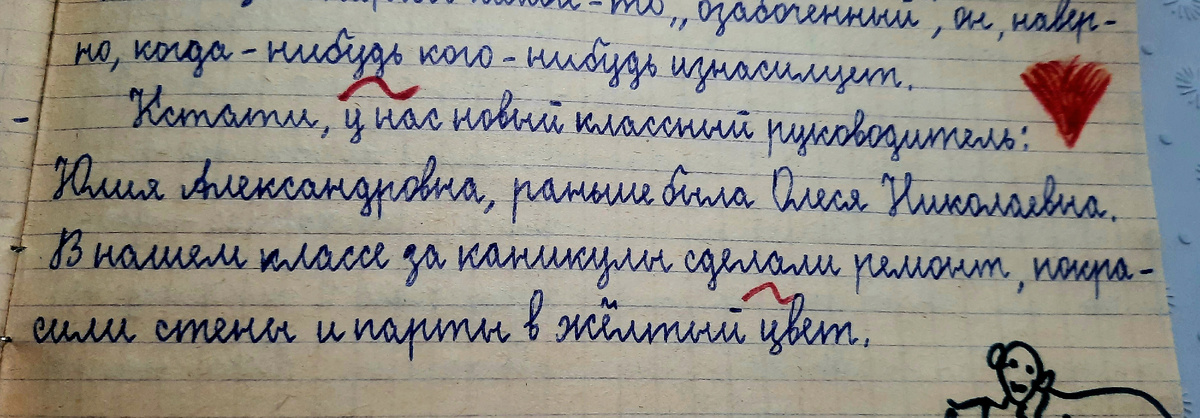 какой-то „озабоченный, он, навер-
но, когда-нибудь кого-нибудь изнасилует.
Кстати, у нас новый классный руководитель:
Юлия Александровна, раньше была Олеся Николаевна.
В нашем классе за каникулы сделали ремонт, покра-
сили стены и парты в жёлтый цвет.